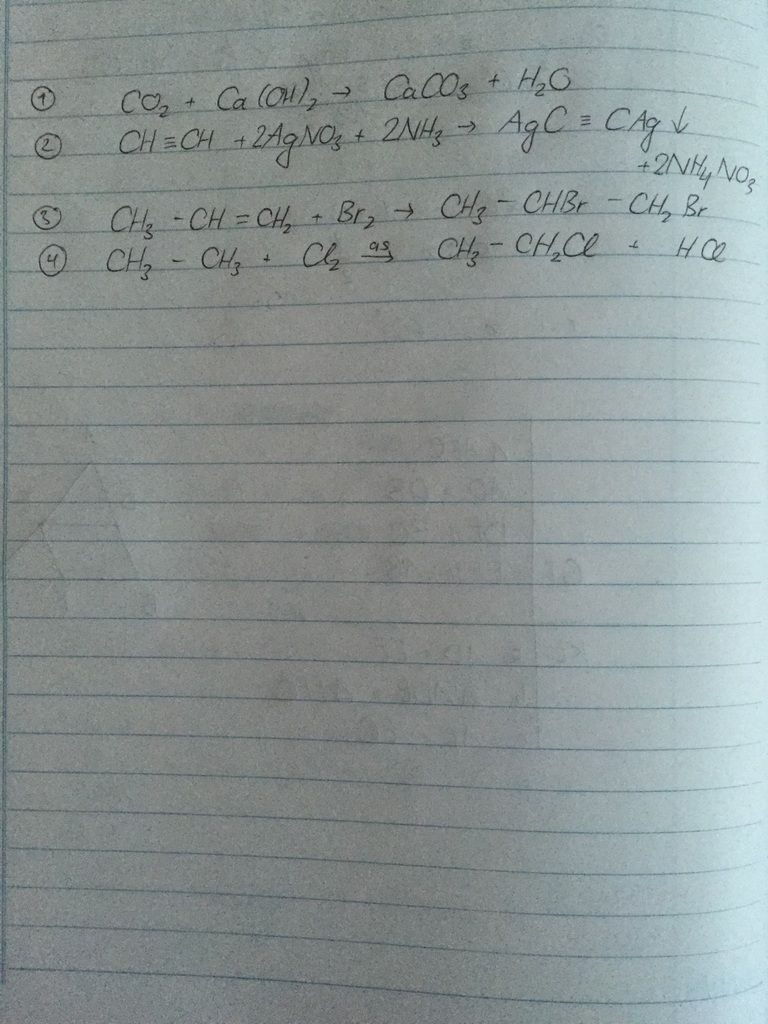 ① CO₂ + Ca(OH)₂ → CaCO₃ + H₂O
② CH≡CH + 2AgNO₃ + 2NH₃ → AgC≡CAg↓
+2NH₄NO₃
③ CH₃-CH=CH₂ + Br₂ → CH₃-CHBr-CH₂Br
④ CH₃-CH₃ + Cl₂ as→ CH₃-CH₂Cl + HCl